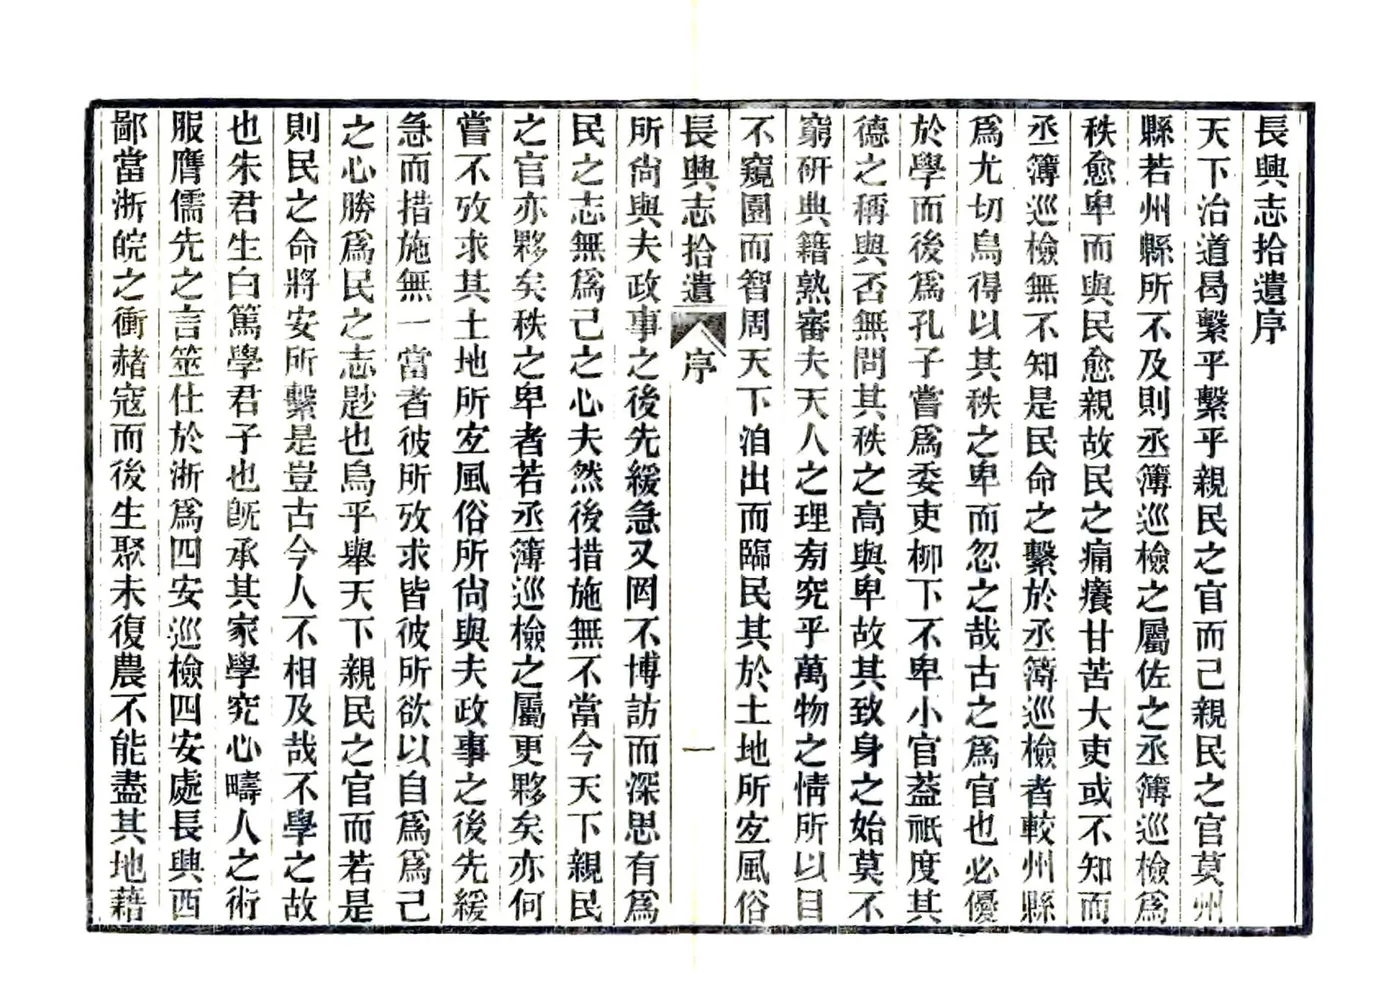 長興志拾遺序
天下治道曷繫乎繫乎親民之官而已親民之官莫州
縣若州縣所不及則丞簿巡檢之屬佐之丞簿巡檢爲
秩愈卑而與民愈親故民之痛癢甘苦大吏或不知而
丞簿巡檢無不知是民命之繫於丞簿巡檢者較州縣
爲尤切烏得以其秩之卑而忽之哉古之爲官也必優
於學而後爲孔子嘗爲委吏柳下不卑小官葢祇度其
德之稱與否無問其秩之高與卑故其致身之始莫不
窮研典籍熟審夫天人之理旁究乎萬物之情所以目
不窺園而智周天下洎出而臨民其於土地所宜風俗
長興志拾遺 序 一
所尙與夫政事之後先緩急又罔不博訪而深思有爲
民之志無爲己之心夫然後措施無不當今天下親民
之官亦夥矣秩之卑者若丞簿巡檢之屬更夥矣亦何
嘗不攷求其土地所宜風俗所尙與夫政事之後先緩
急而措施無一當者彼所攷求皆彼所欲以自爲爲己
之心勝爲民之志尟也烏乎舉天下親民之官而若是
則民之命將安所繫是豈古今人不相及哉不學之故
也朱君生白篤學君子也旣承其家學究心疇人之術
服膺儒先之言筮仕於浙爲四安巡檢四安處長興西
鄙當浙皖之衝赭寇而後生聚未復農不能盡其地藉